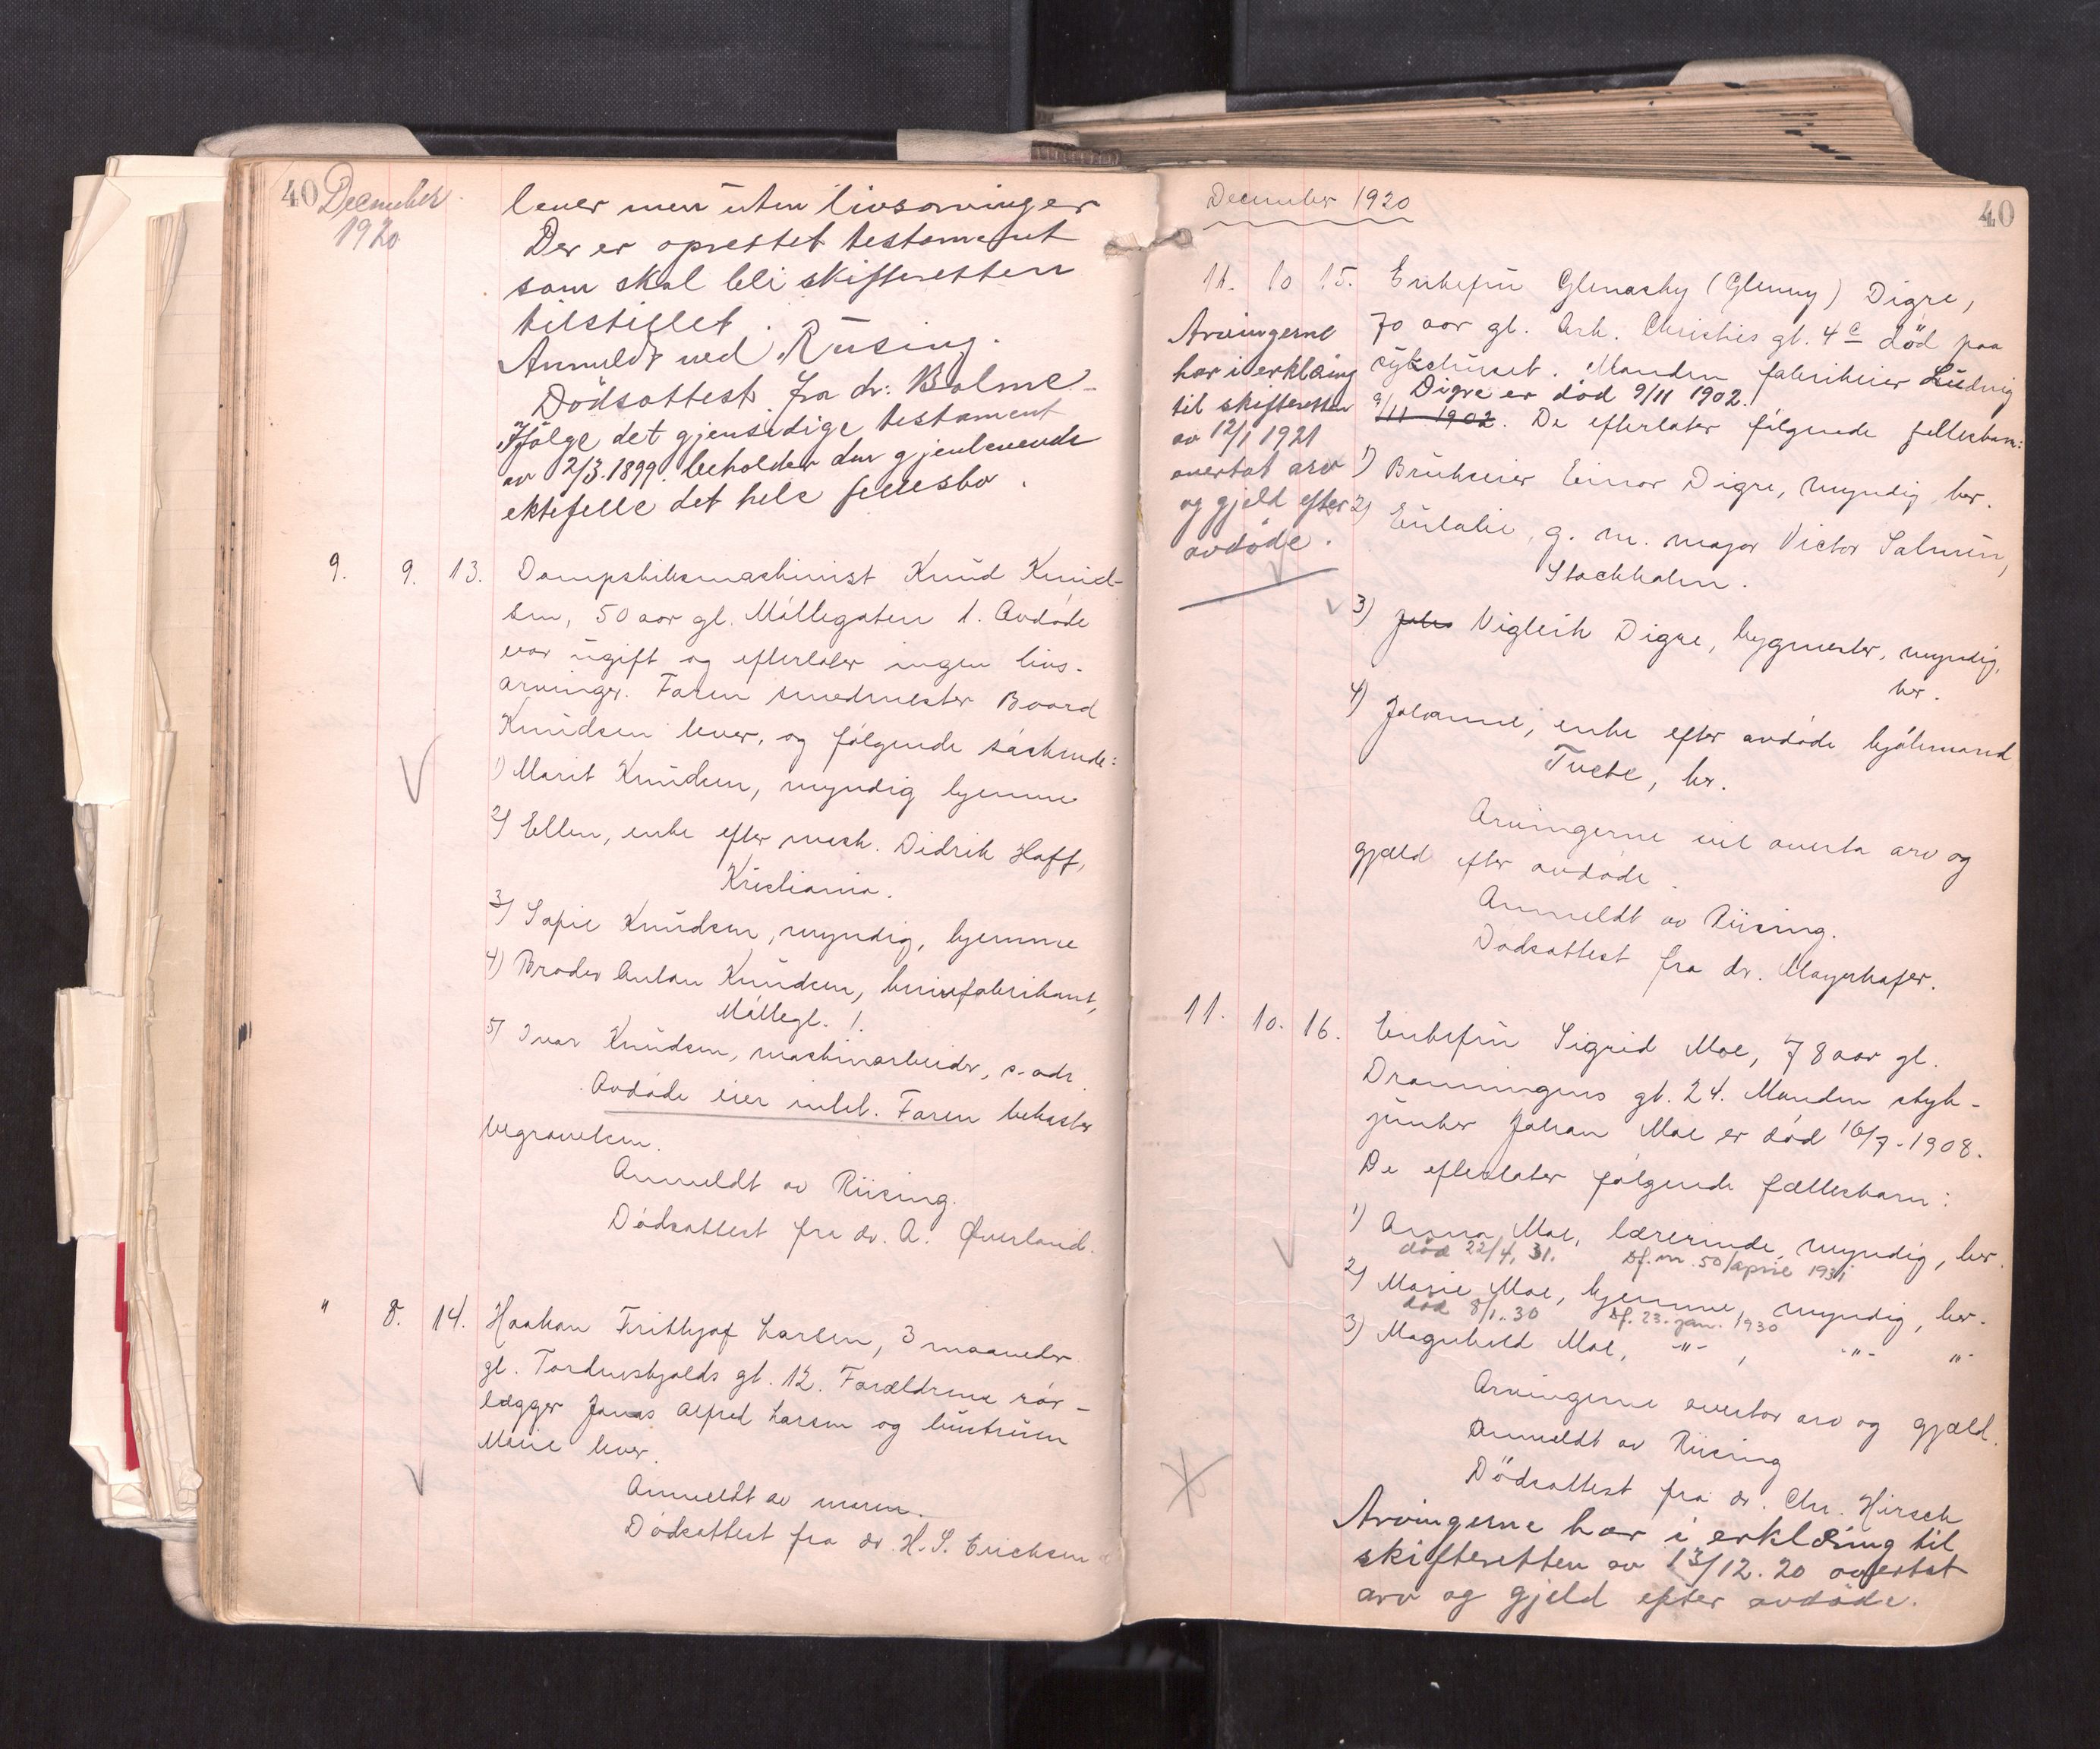 40 December
1920
lever men uten livsarvinger
Der er oprettet testament
som skal bli skifteretten
tilstillet.
Anmeldt ved Rüsing.
Dödsattest fra dr: Balme
Ifölge det gjensidige testament
av 2/3.1899. beholder den gjenlevende
ektefelle det hele fellesbo.
9. 9. 13. Dampskibsmaskinist Knud Knud-
sen, 50 aar gl. Möllegaten 1. Avdöde
var ugift og efterlater ingen livs-
arvinger. Faren smedmester Baard
Knudsen lever, og fölgende söskende:
1) Marit Knudsen, myndig hjemme
2) Ellen, enke efter mask. Didrik Hoff,
Kristiania.
3) Sofie Knudsen, myndig, hjemme
4) Broder Anton Knudsen, fabrikant,
Möllegt. 1.
5) Ivar Knudsen, maskinarbeider, s. adr.
Avdöde eier intet. Faren bekoster
begravelsen.
Anmeldt av Riising.
Dödsattest fra dr. A. Øverland.
" 8. 14. Haakon Frithjof Larsen, 3 maaneder
gl. Tordenskjolds gt. 12. Forældrene rör-
lægger Jonas Alfred Larsen og hustruen
Marie lever.
Anmeldt av moren.
Dödsattest fra dr. H. S. Erichsen
December 1920
40
11. 10 15. Enkefru Glenachy (Glenny) Digre,
70 aar gl. Ark. Christies gt. 4c död paa
sykehuset. Manden fabrikeier Ludvig
Digre er död 9/11 1902.
9/11 1902. De efterlater fölgende fellesbarn:
1) Brukseier Einar Digre, myndig her.
2) Eulalie, g. m. major Victor Salmén,
Stockholm.
3) Johs Vigleik Digre, bygmester, myndig,
her.
4) Johanne, enke efter avdöde kjöbmand
Tvete, her.
Arvingerne vil overta arv og
gjæld efter avdöde.
Anmeldt av Riising.
Dödsattest fra dr. Mayerhofer.
Arvingerne
har i erklæring
til skifteretten
av 12/1 1921
overtat arv
og gjeld efter
avdöde.
11. 10. 16. Enkefru Sigrid Moe, 78 aar gl.
Dronningens gt. 24. Manden styk-
junker Johan Moe er död 16/7-1908.
De efterlater fölgende fællesbarn:
1) Anna Moe, lærerinde, myndig, her.
död 22/4. 31. Df. nr. 50/april 1931
2) Marie Moe, hjemme, myndig, her.
död 8/1..30 Df. 23. jan. 1930
3) Magnhild Moe, -"-, -"- "-
Arvingerne overtar arv og gjæld.
Anmeldt av Riising
Dödsattest fra dr. Chr. Hirsch
Arvingerne har i erklæring til
skifteretten av 13/12.20 overtat
arv og gjeld efter avdöde.